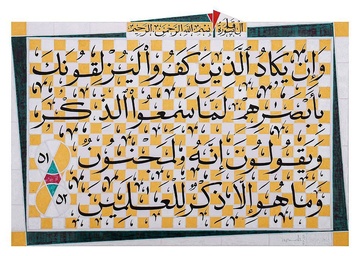 بسم الله الرحمن الرحيم
وإن يكاد الذين كفروا ليزلقونك
بأبصرهم لما سمعوا الذكر
ويقولون إنه لمجنون ٥١
وما هو إلا ذكر للعلمين ٥٢